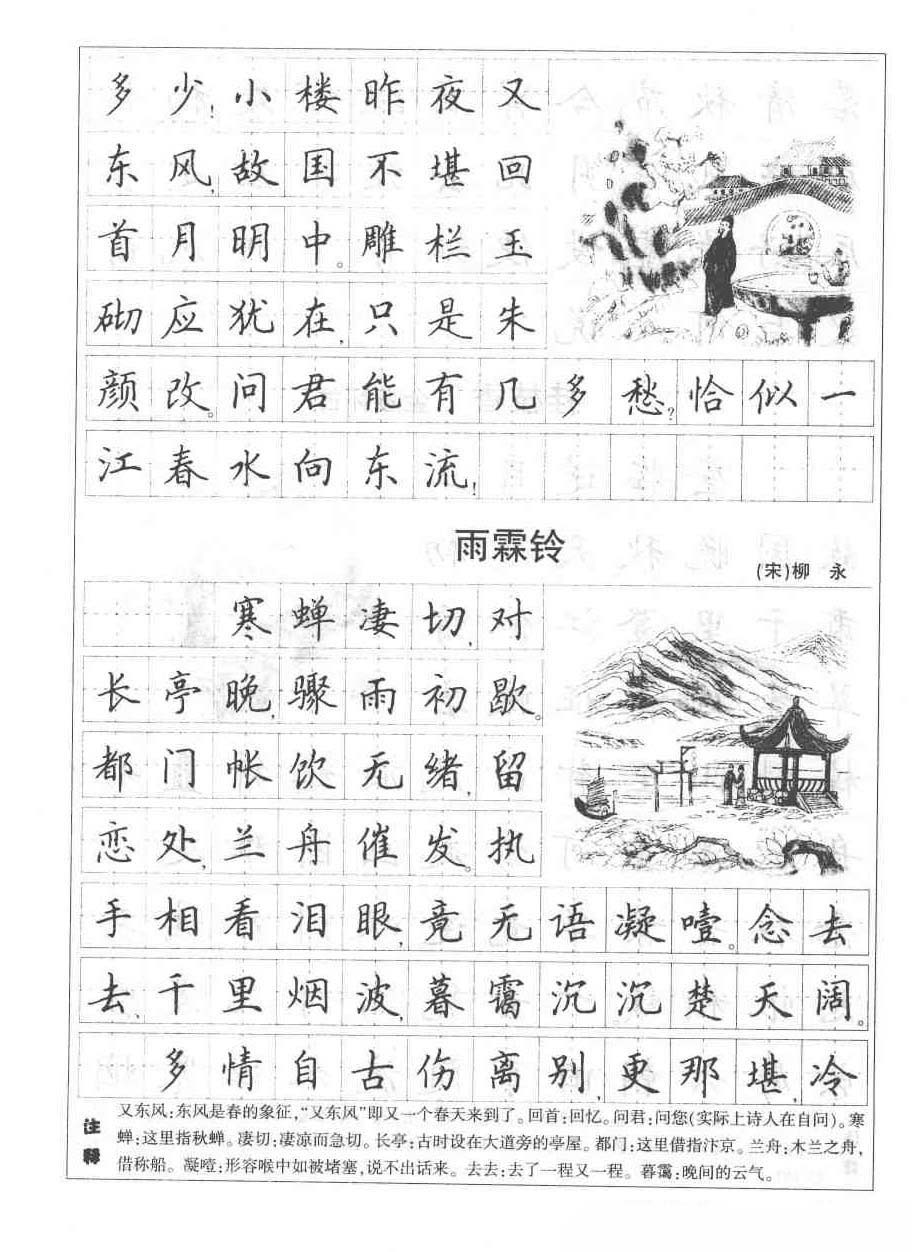 多少!小楼昨夜又
东风,故国不堪回
首月明中。雕栏玉
砌应犹在,只是朱
颜改。问君能有几多愁?恰似一
江春水向东流!
雨霖铃
(宋)柳 永
寒蝉凄切,对
长亭晚,骤雨初歇。
都门帐饮无绪,留
恋处,兰舟催发。执
手相看泪眼,竟无语凝噎。念去
去,千里烟波,暮霭沉沉楚天阔。
多情自古伤离别,更那堪,冷
注释
又东风:东风是春的象征,“又东风”即又一个春天来到了。回首:回忆。问君:问您(实际上诗人在自问)。寒
蝉:这里指秋蝉。凄切:凄凉而急切。长亭:古时设在大道旁的亭屋。都门:这里借指汴京。兰舟:木兰之舟,
借称船。凝噎:形容喉中如被堵塞,说不出话来。去去:去了一程又一程。暮霭:晚间的云气。